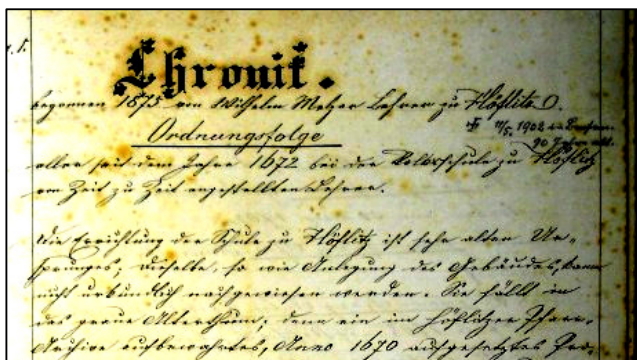 Chronik.
begonnen 1875 von Wilhelm Metzer Lehrer zu Höflitz
† 11/5. 1902
90 Jahre alt.
Ordnungsfolge
aller seit dem Jahre 1672 bei der Volksschule zu Höflitz
von Zeit zu Zeit angestellten Lehrer.
Die Errichtung der Schule zu Höflitz ist sehr alten Ur-
sprunges; dieselbe, so wie Anlegung des Gebäudes, kann
nicht urkundlich nachgewiesen werden. Sie fällt in
das graue Alterthum; denn ein im Höflitzer Pfarr-
Archive aufbewahrtes, Anno 1670 aufgesetztes